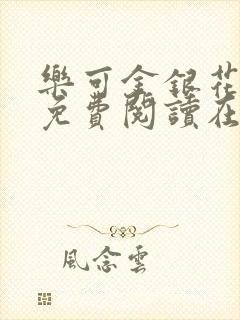 樂可金銀花
免費閱讀在
風念雲